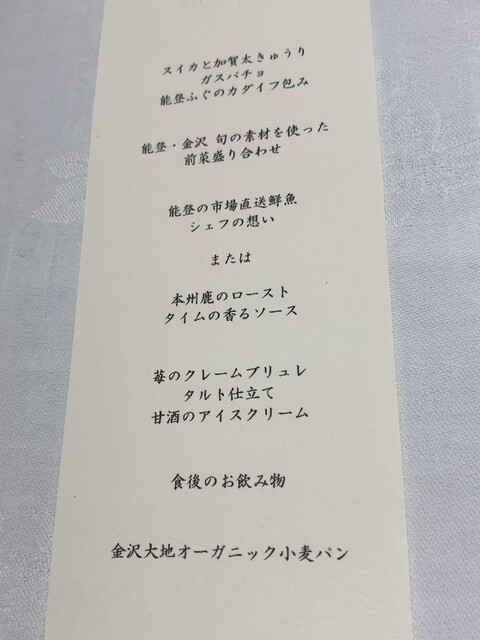 スイカと加賀太きゅうり
ガスパチョ
能登ふぐのカダイフ包み
能登・金沢 旬の素材を使った
前菜盛り合わせ
能登の市場直送鮮魚
シェフの想い
または
本州鹿のロースト
タイムの香るソース
苺のクレームブリュレ
タルト仕立て
甘酒のアイスクリーム
食後のお飲み物
金沢大地オーガニック小麦パン